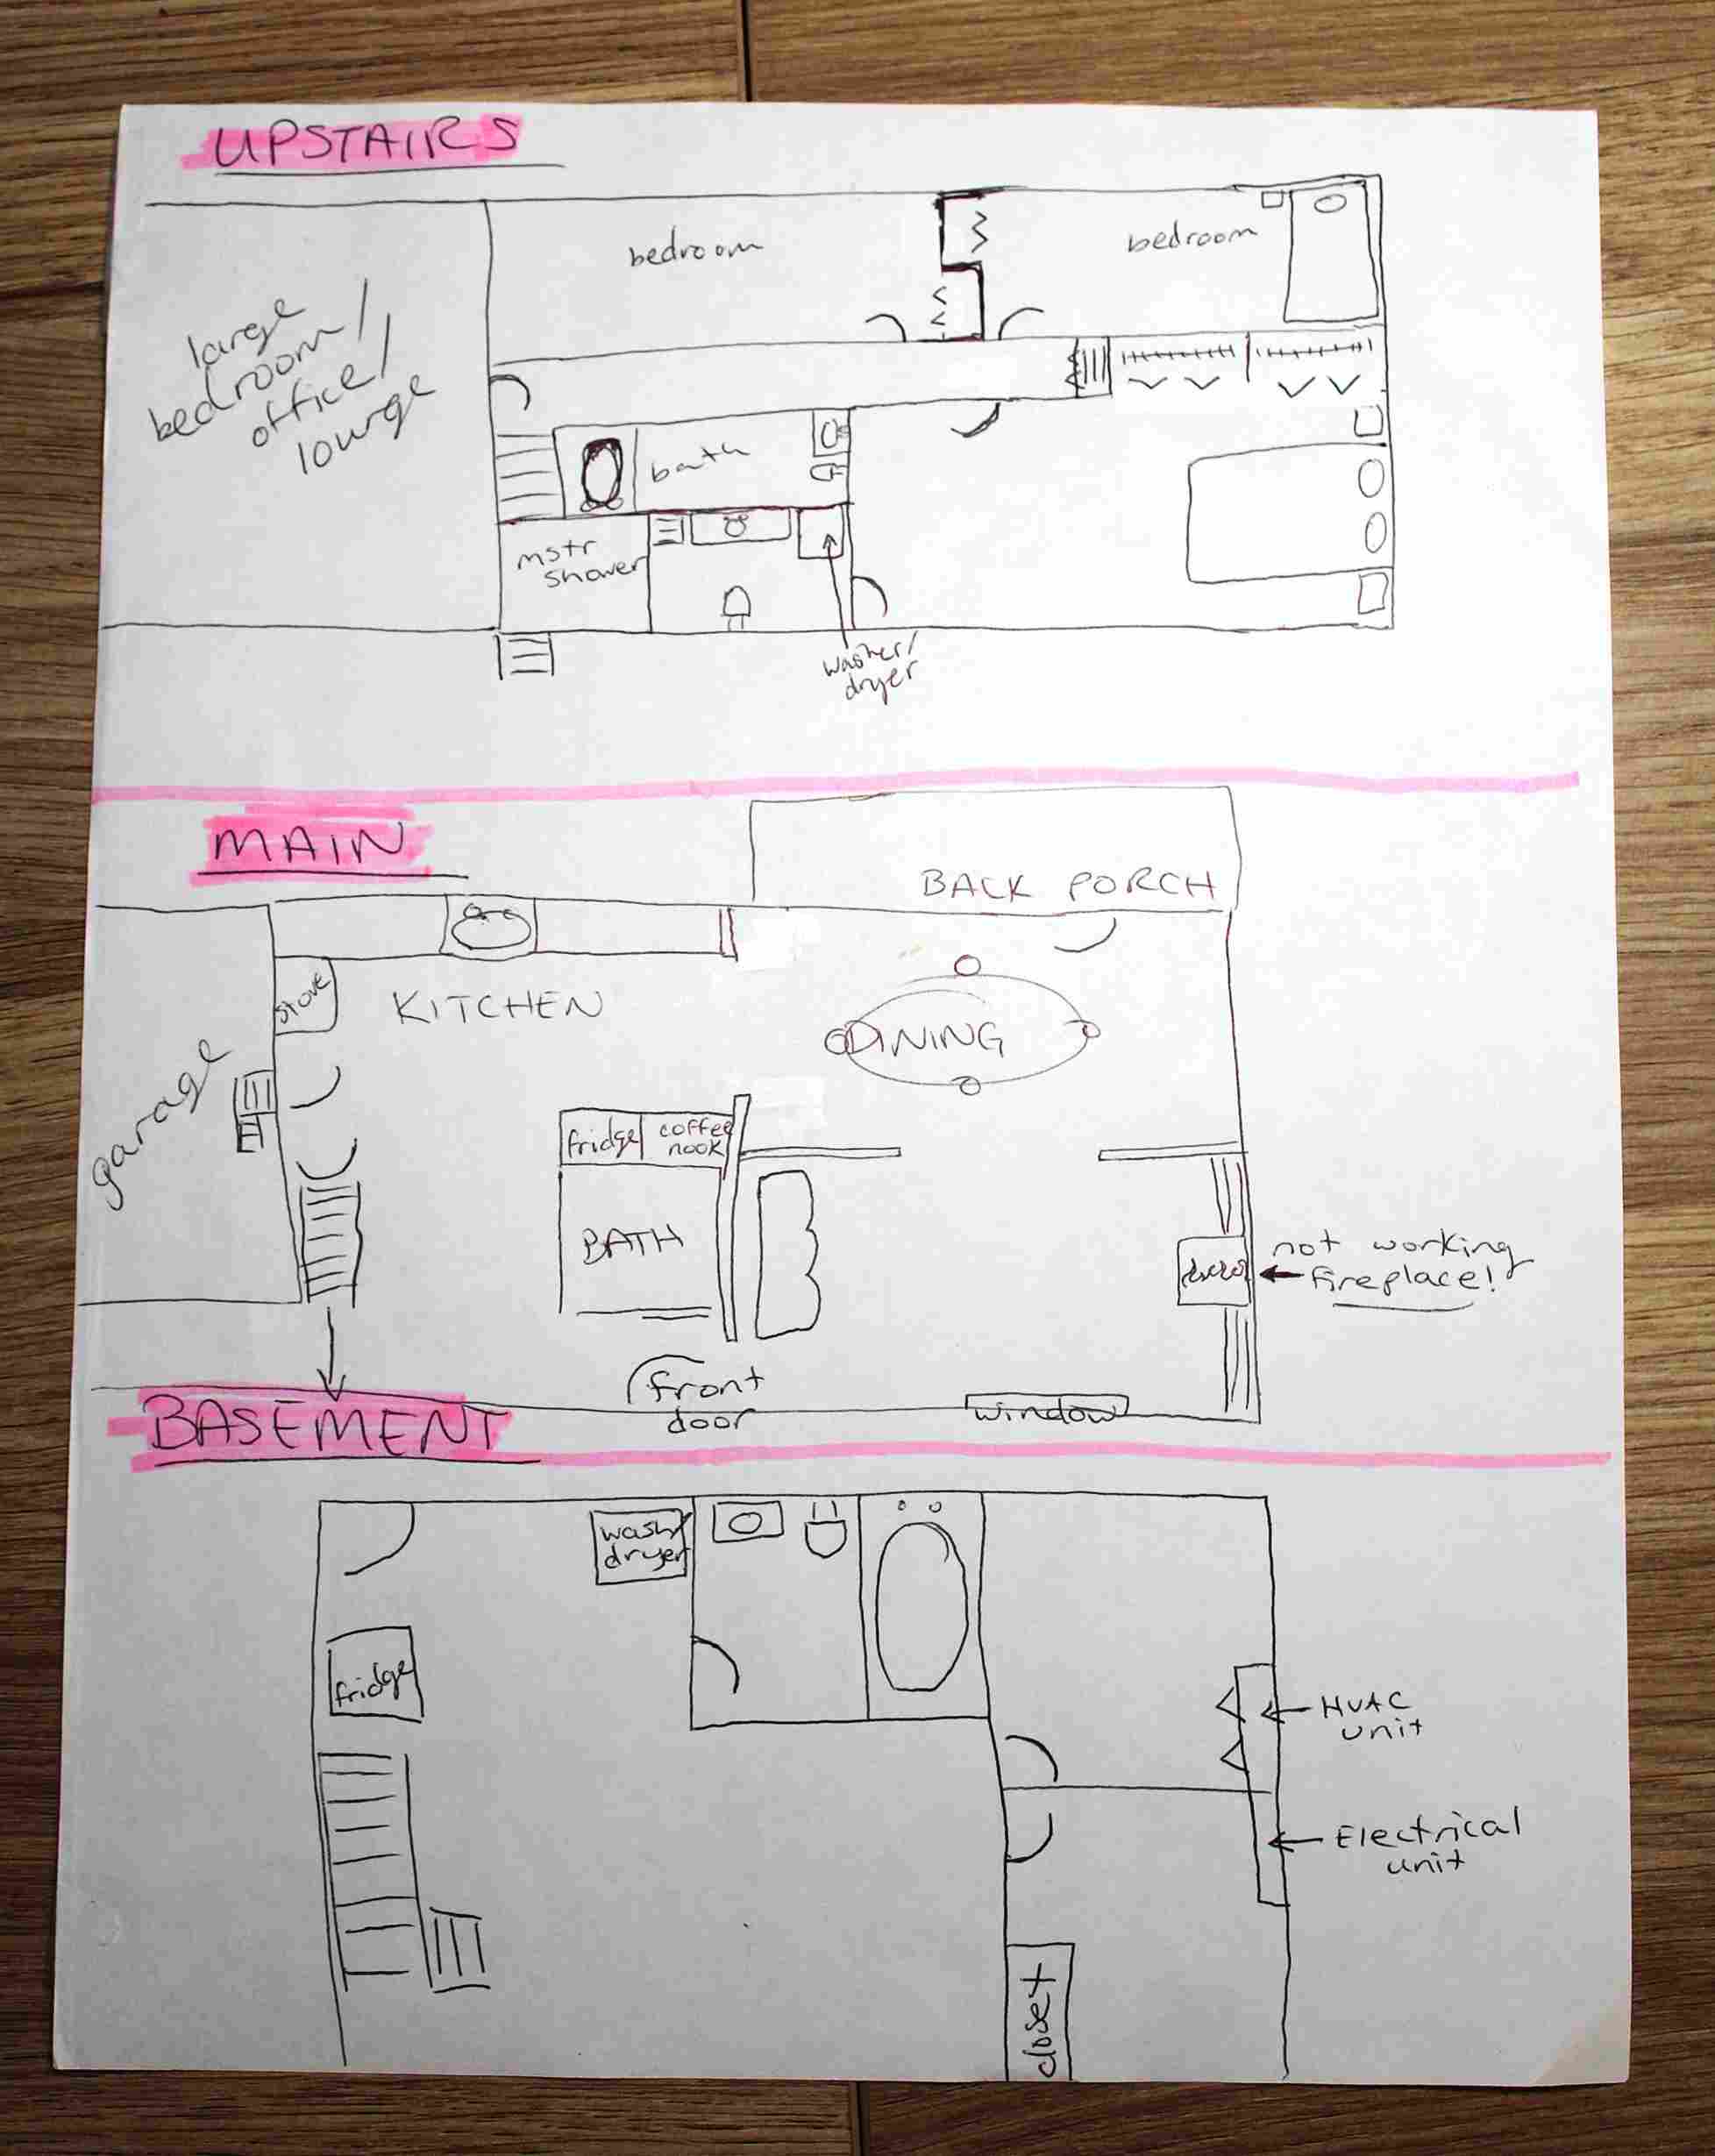 UPSTAIRS
bedroom
bedroom
large
bedroom/
office/
lounge
bath
mstr
shower
washer/
dryer
MAIN
BACK PORCH
stove
KITCHEN
DINING
garage
fridge
coffee
nook
BATH
not working
fireplace!
front
door
window
BASEMENT
wash/
dryer
fridge
HVAC
unit
Electrical
unit
closet